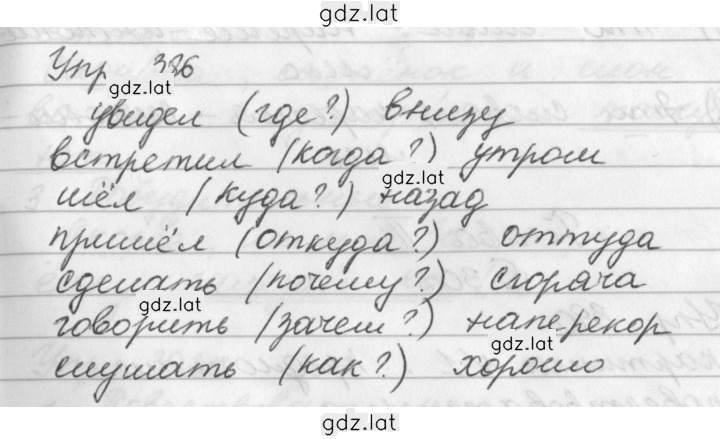 gdz.lat
Упр 336
gdz.lat
увидел (где?) внизу
встретил (когда?) утром
gdz.lat
шёл (куда?) назад
пришёл (откуда?) оттуда
сделать (почему?) сгоряча
gdz.lat
говорить (зачем?) наперекор
gdz.lat
слушать (как?) хорошо
gdz.lat